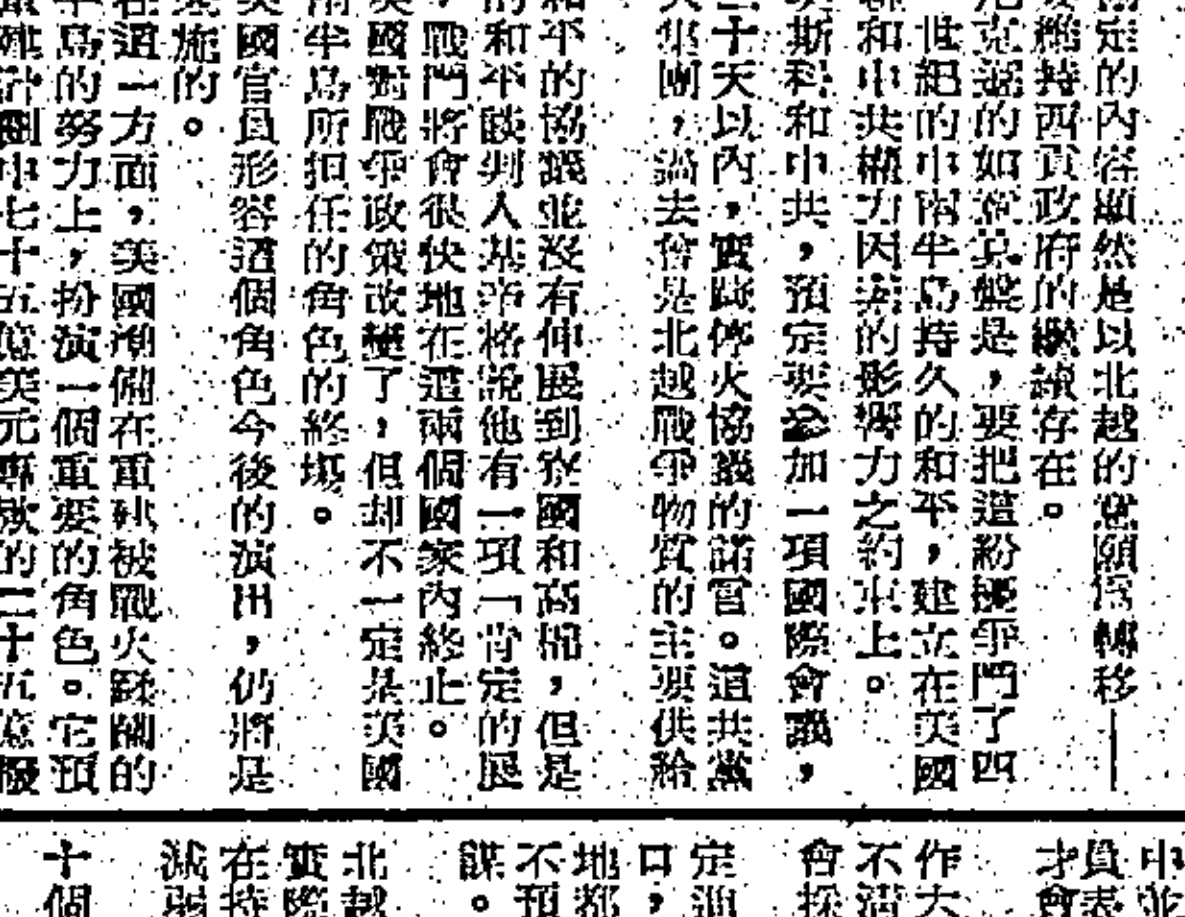 定的內容顯然是以北越的意願爲轉移——
維持西貢政府的繼續存在。
克遜的如意算盤是，要把這紛擾爭鬥了四
世紀的中南半島持久的和平，建立在美國
和中共權力因素的影響力之約束上。
斯科和中共，預定要參加一項國際會議，
十天以內，實踐停火協議的諾言。這共黨
集團，過去曾是北越戰爭物質的主要供給
和平的協議並沒有伸展到寮國和高棉，但是
的和平談判人基辛格說他有一項「肯定的展
，戰鬥將會很快地在這兩個國家內終止。
國對戰爭政策改變了，但却不一定是美國
半島所担任的角色的終場。
美國官員形容這個角色今後的演出，仍將是
施的。
在這一方面，美國準備在重建被戰火蹂躪的
半島的努力上，扮演一個重要的角色。它預
計劃中七十五億美元專款的二十五億撥
中並
員表
才會
作大
不清
會採
定進
口，
地都
不預
謀。
北越
實際
在持
減弱
十個